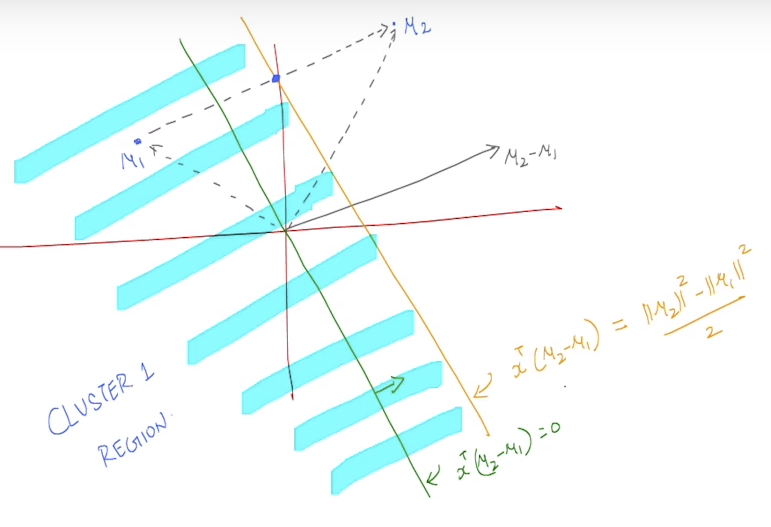 μ₂
μ₁
μ₂-μ₁
xᵀ(μ₂-μ₁) = ||μ₂||² - ||μ₁||² / 2
CLUSTER 1
REGION.
xᵀ(μ₂-μ₁)=0